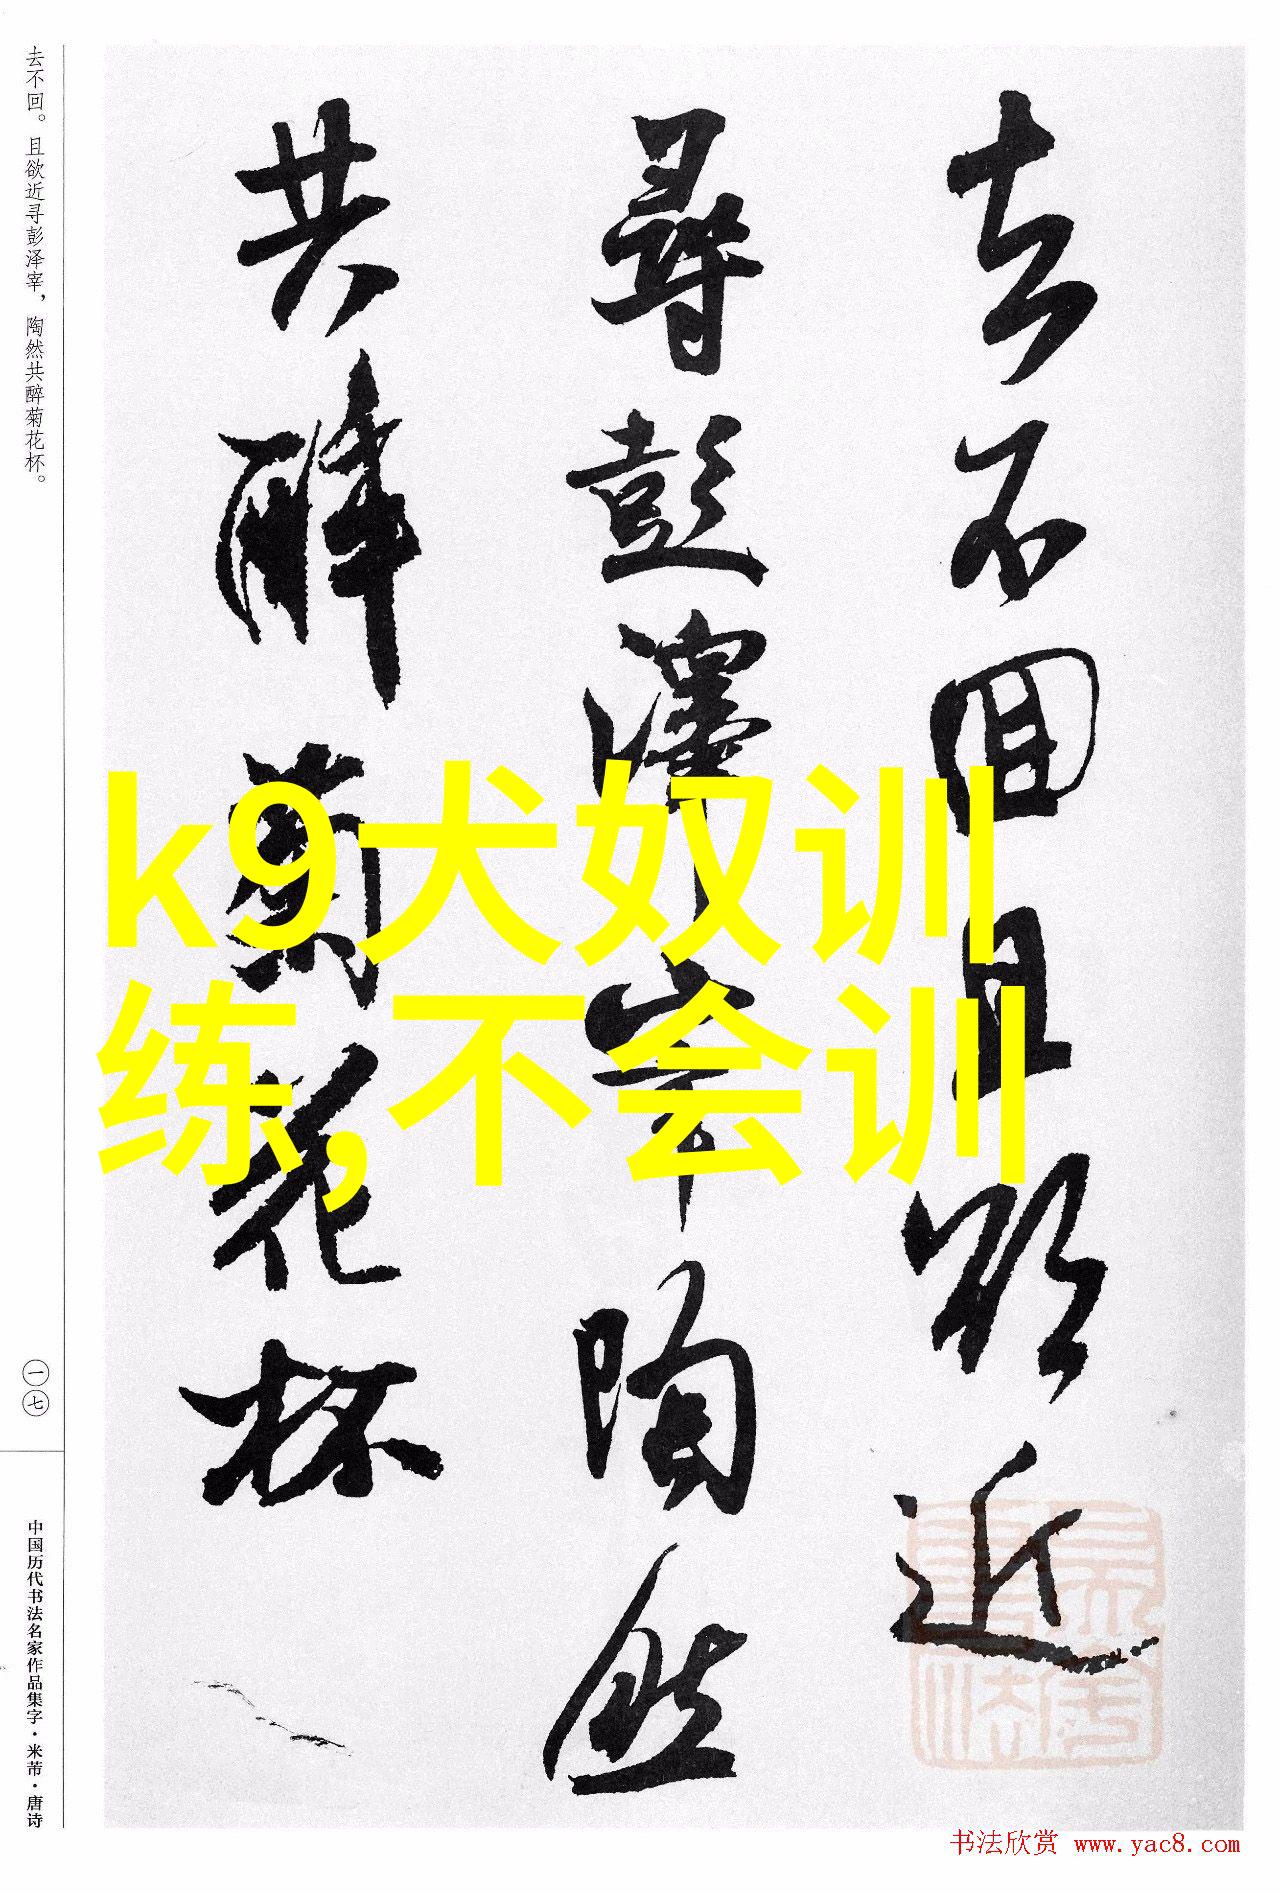 去不回。且欲近寻彭泽宰，陶然共醉菊花杯。
去不回且欲近
尋彭澤宰陶然
共醉菊花杯
k9犬奴训
练,不会训
一七
中国历代书法名家作品集字·米芾·唐诗
书法欣赏 www.yac8.com